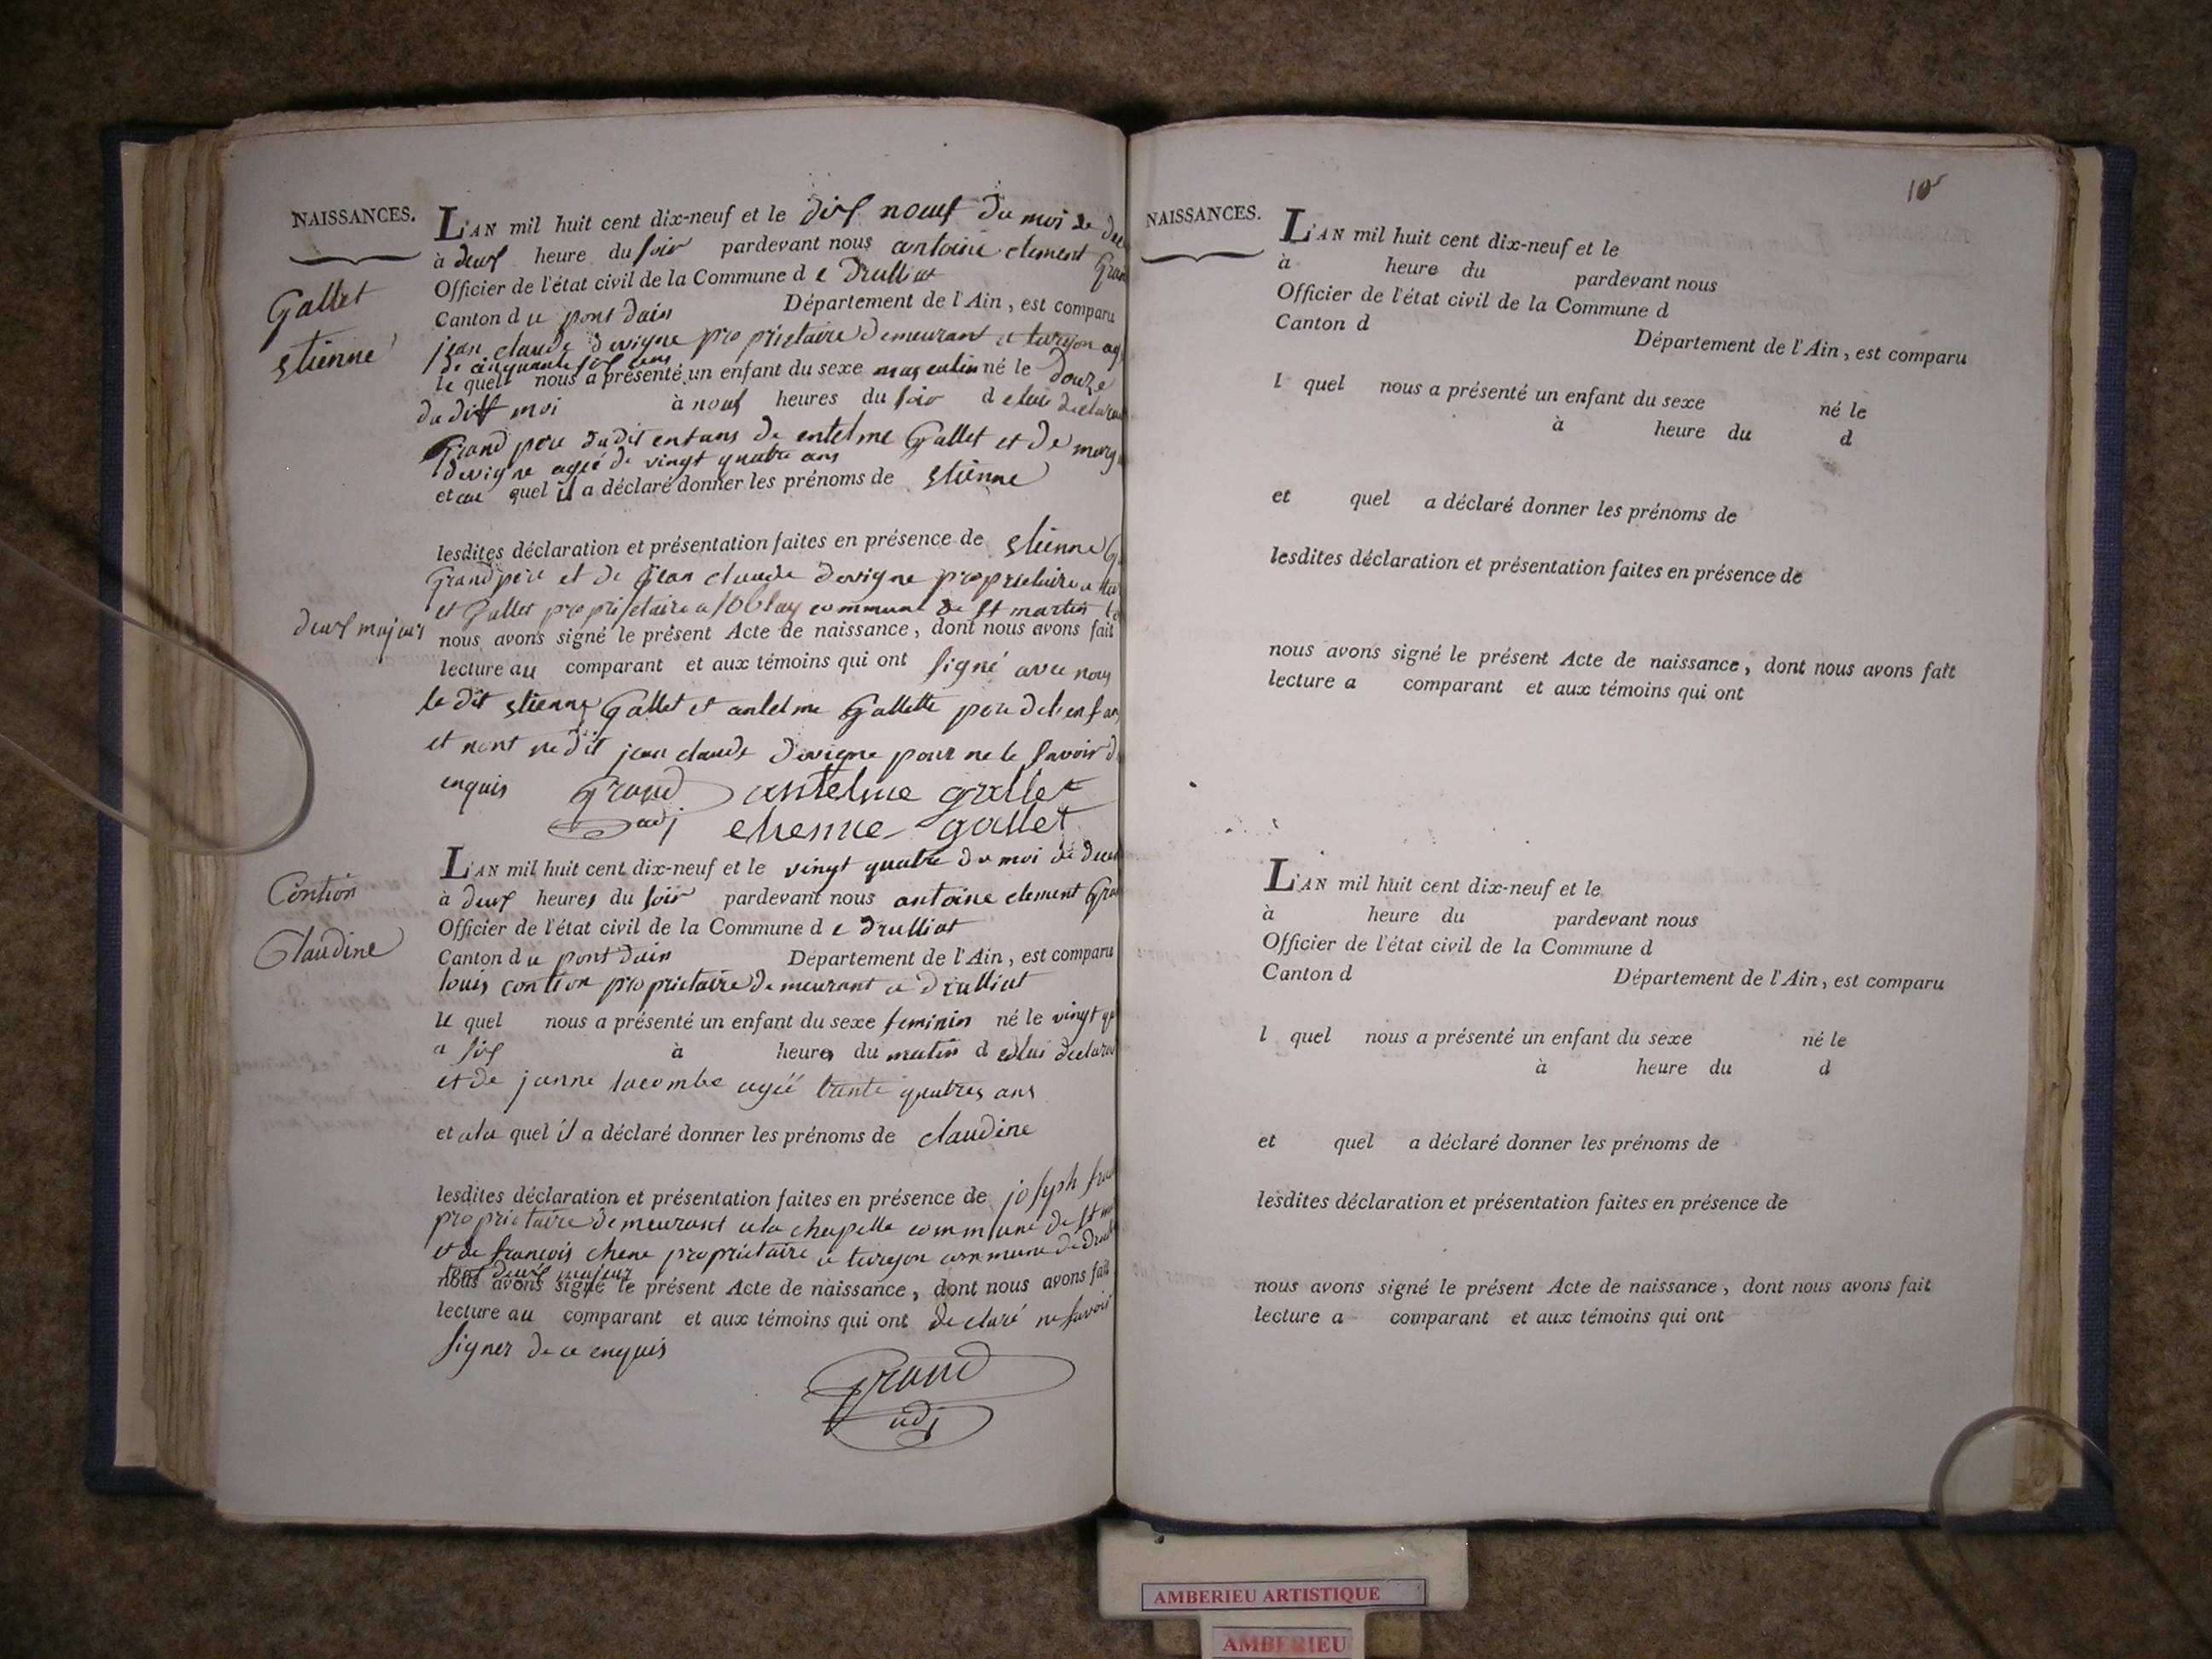 NAISSANCES.
Gallet
etienne
L'AN mil huit cent dix-neuf et le dix neuf du mois de
à deux heure du soir pardevant nous antoine clement
Officier de l'état civil de la Commune de Drulliat
Canton du pont dain Département de l'Ain, est comparu
jean claude devigne proprietaire demeurant a turgon
de cinquante six ans
le quel nous a présenté un enfant du sexe masculin né le douze
du dit moi à neuf heures du soir
Grand pere dudit enfans de entelme Gallet et de
devigne agée de vingt quatre ans
et au quel il a déclaré donner les prénoms de etienne
lesdites déclaration et présentation faites en présence de etienne
Grand pere et de jean claude devigne proprietaire a
et Gallet proprietaire a commune de st martin
deux majeurs
nous avons signé le présent Acte de naissance, dont nous avons fait
lecture au comparant et aux témoins qui ont signé avec nous
le dit etienne Gallet et antelme Gallette pere
et non ledit jean claude devigne pour ne le savoir
enquis Grand antelme gallet
adj etienne gallet
Contion
Claudine
L'AN mil huit cent dix-neuf et le vingt quatre du moi de
à deux heures du soir pardevant nous antoine clement
Officier de l'état civil de la Commune de Drulliat
Canton du pont dain Département de l'Ain, est comparu
louis contion proprietaire demeurant a drulliat
le quel nous a présenté un enfant du sexe feminin né le vingt
a six à heures du matin
et de janne lacombe agée trante quatres ans
et a la quel il a déclaré donner les prénoms de claudine
lesdites déclaration et présentation faites en présence de joseph
proprietaire demeurant a la chapelle commune de st
et de francois chene proprietaire a turgon commune de
tous deux majeur
nous avons signé le présent Acte de naissance, dont nous avons fait
lecture au comparant et aux témoins qui ont declaré ne savoir
signer de ce enquis
Grand
adj
NAISSANCES.
L'AN mil huit cent dix-neuf et le
à heure du pardevant nous
Officier de l'état civil de la Commune d
Canton d
Département de l'Ain, est comparu
l quel nous a présenté un enfant du sexe né le
à heure du d
et quel a déclaré donner les prénoms de
lesdites déclaration et présentation faites en présence de
nous avons signé le présent Acte de naissance, dont nous avons fait
lecture a comparant et aux témoins qui ont
L'AN mil huit cent dix-neuf et le
à heure du pardevant nous
Officier de l'état civil de la Commune d
Canton d Département de l'Ain, est comparu
l quel nous a présenté un enfant du sexe né le
à heure du d
et quel a déclaré donner les prénoms de
lesdites déclaration et présentation faites en présence de
nous avons signé le présent Acte de naissance, dont nous avons fait
lecture a comparant et aux témoins qui ont
AMBERIEU ARTISTIQUE
AMBERIEU